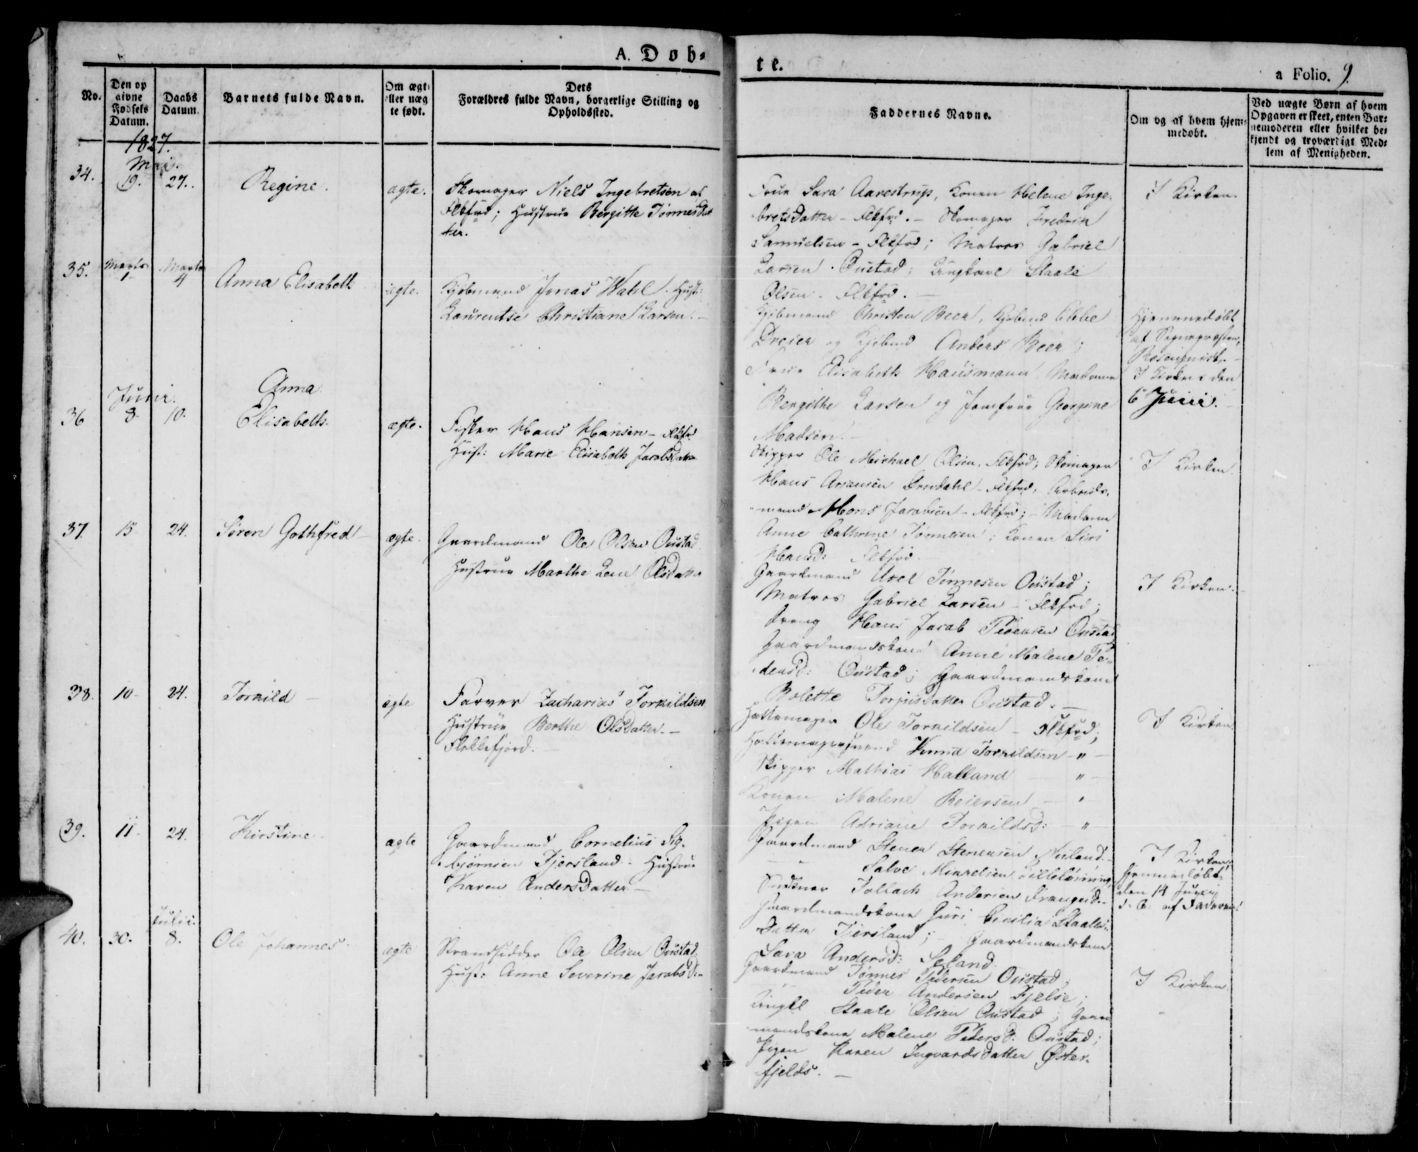 A. Døb-
te.
a Folio. 9.
No.
Den op
givne
Fødsels
Datum.
Daabs
Datum.
Barnets fulde Navn.
Om ægt
eller uæg
te født.
Dets
Forældres fulde Navn, borgerlige Stilling og
Opholdssted.
Faddernes Navne.
Om og af hvem hjem-
medøbt.
Ved uægte Børn af hvem
Opgaven er skeet, enten Bar-
nemoderen eller hvilket be-
kjendt og troværdigt Med-
lem af Menigheden.
1827.
Mai.
34. 19. 27. Regine. ægte. Skomager Niels Ingebretsen af
Flkfiord; Hustrue Bergitte Tønnesdat
ter.
Frue Sara Aarestrup, Konen Helene Inge-
bretsdatter - Flkfd. - Skomager Fredrik
Samuelsen - Flkfd; Matros Gabriel
Larsen - Øustad; Ungkarl Staale
Olsen - Flkfd. -
I Kirken.
35. Marts 1. Marts 4 Anna Elisabeth ægte. Kjøbmand Jonas Wahl. Hust:
Laurentse Christiane Larsen. -
Kjøbmand Christen Beer, Kjøbmd Ebbe
Dreier og Kjøbmd Anders Beer;
Frue Elisabeth Hausmann, Madame
Bergithe Larsen og Jomfrue Georgine
Madsen. -
Hjemmedøbt
af Sognepræsten
I Kirken den
6 Juni.
Juni.
36 8. 10. Anna
Elisabeth. ægte. Fisker Hans Hansen - Flkfd
Hust: Marie Elisabeth Jacobsdatter
Skipper Ole Michael Olsen, Flkfd; Skomager
Hans Flkfd; Arbeids-
mand Hans Jacobsen - Flkfd; Madame
Anne Cathrine Tønnesen; Konen Siri
Hansd: Flkfd
I Kirken.
37. 15 24. Søren Gothfred ægte. Gaardmand Ole Olsen Øustad
Hustrue Marthe Lene Olsdatter
Gaardmand Axel Tønnesen Øustad;
Matros Gabriel Larsen - Flkfd;
Dreng Hans Jacob Pedersen Øustad
Gaardmandskone Anne Malene Pe-
dersd: Øustad; Gaardmandskone
Bolette Torjusdatter Øustad. -
I Kirken.
38. 10 24. Torkild - ægte Farver Zacharias Torkildsen
Hustrue Berthe Olsdatter. -
Flekkefjord. -
Hattemager Ole Torkildsen - Flkfd;
Torkildsen - " -
Skipper Mathias Halland - " -
Konen Malene Reiersen - "
Pigen Adriane Torkildsd: - "
I Kirken
39. 11 24. Kirstine. ægte Gaardmand Cornelius Sig-
bjørnsen Fjersland - Hustrue
Karen Andersdatter -
Gaardmand Stener Stenersen
Salve
Tollach Andersen
Gaardmandskone Guri Cecilia Staales-
datter Fjersland; - Gaardmandskone
Sara Andersd: Seland
I Kirken,
hjemmedøbt
den 14 Juny
s. a. af Faderen.
Julii.
40. 30. 8. Ole Johannes. ægte Strandsidder Ole Olsen Øustad
Hust: Anne Severine Jacobsd -
Gaardmand Tønnes Pedersen Øustad
Peder Andersen Fjelse;
Ungkl Staale Olsen Øustad; Gaard-
mandskone Malene Pedersd. Øustad;
Pigen Karen Ingvardsdatter Øster-
fjelds. -
I Kirken